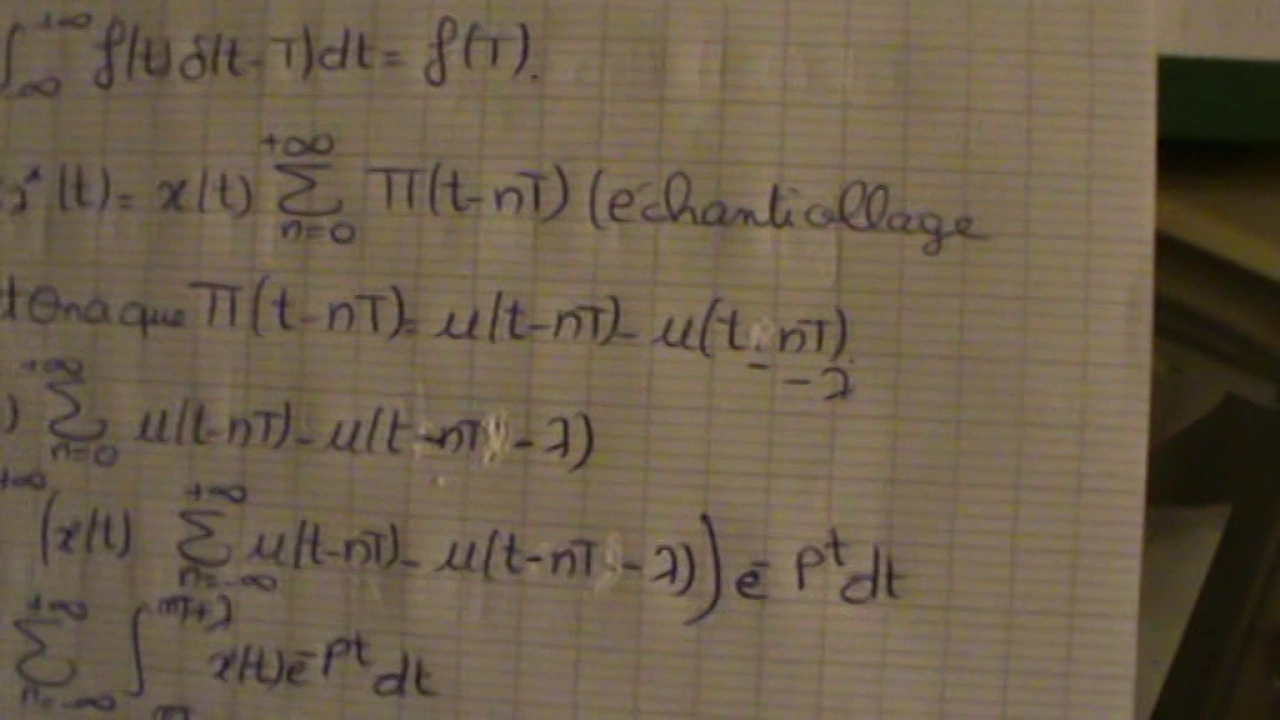 ∫_{-∞}^{+∞} f(t) δ(t-T) dt = f(T).
*(t) = x(t) ∑_{n=0}^{+∞} Π(t-nT) (échanticollage
tOna que Π(t-nT) = u(t-nT) - u(t-nT) -λ
) ∑_{n=0}^{+∞} u(t-nT) - u(t-nT-λ)
+∞ (x(t) ∑_{n=-∞}^{+∞} u(t-nT) - u(t-nT-λ)) e^{-pt} dt
∑_{n=-∞}^{+∞} ∫^{nT+λ} x(t) e^{-pt} dt